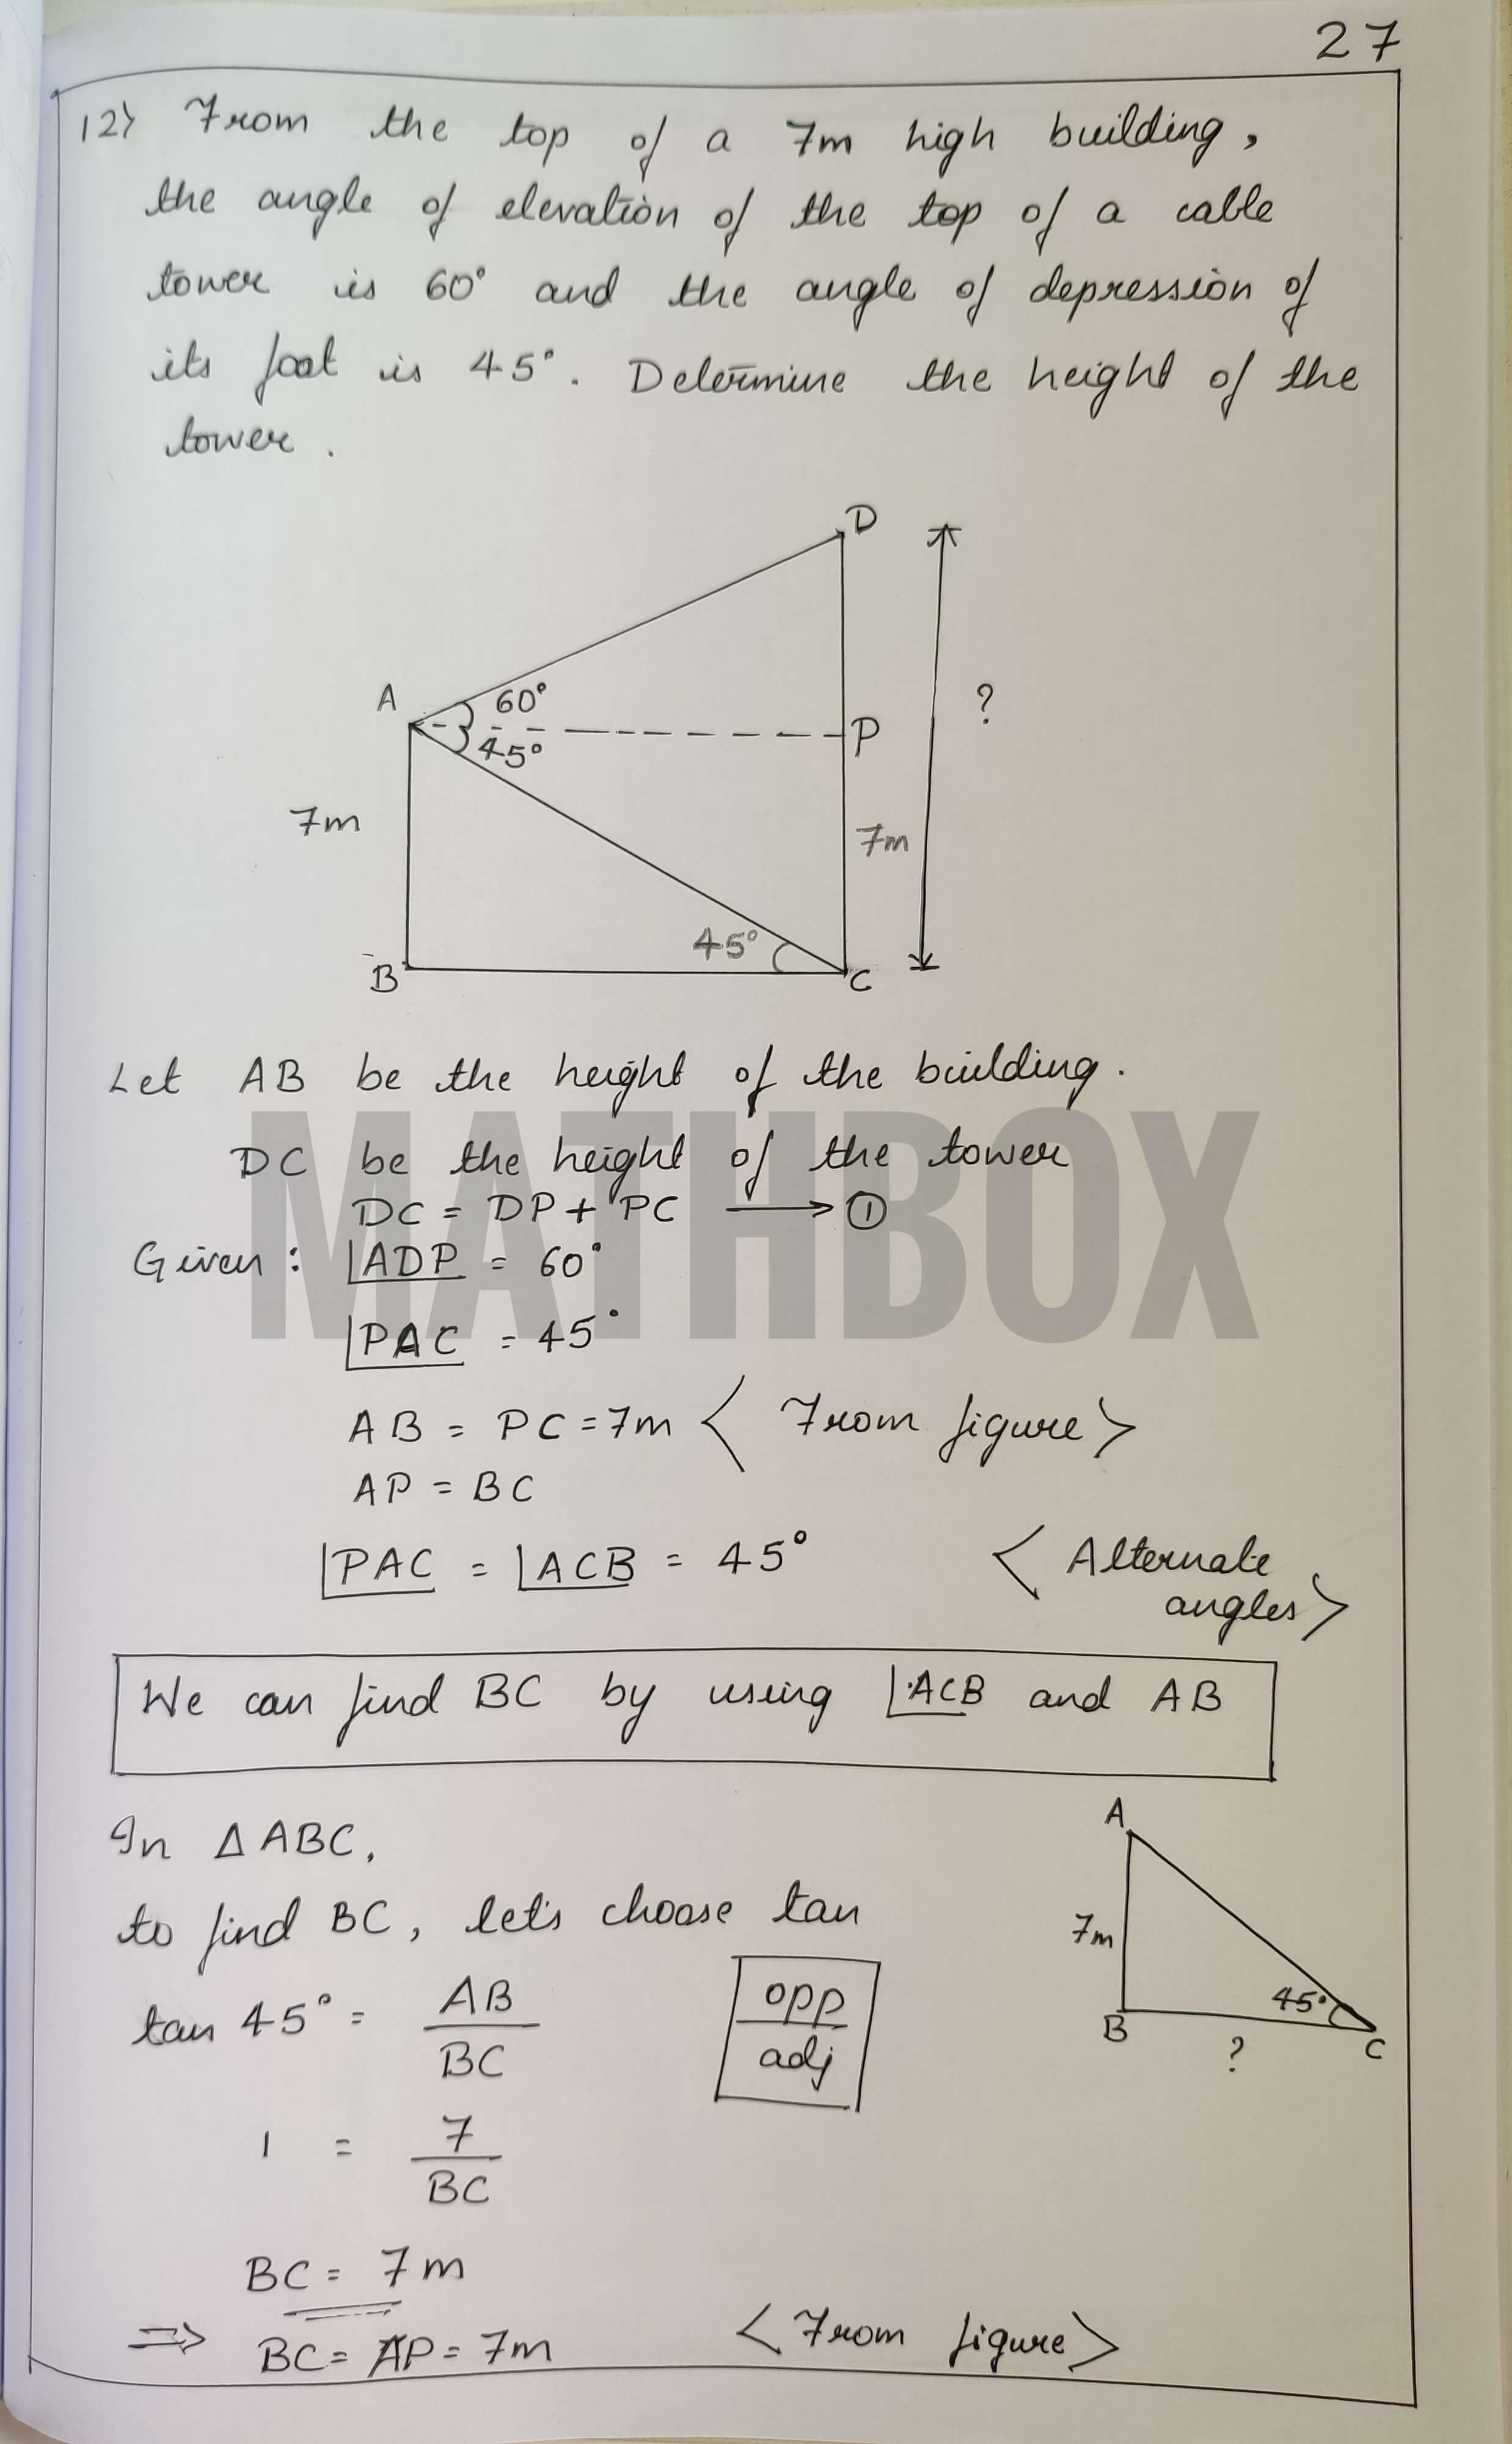 27
12) From the top of a 7m high building,
the angle of elevation of the top of a cable
tower is 60° and the angle of depression of
its foot is 45°. Determine the height of the
tower.
D
A
60°
?
P
45°
7m
7m
45°
B
C
Let AB be the height of the building.
DC be the height of the tower
DC = DP + PC ⟶ ①
Given : ∠ADP = 60°
∠PAC = 45°
AB = PC = 7m < From figure >
AP = BC
∠PAC = ∠ACB = 45° < Alternate
angles >
We can find BC by using ∠ACB and AB
In Δ ABC,
to find BC, let's choose tan
tan 45° = AB / BC
opp / adj
A
7m
45°
B
?
C
1 = 7 / BC
BC = 7m
⇒ BC = AP = 7m < From figure >
MATHBOX